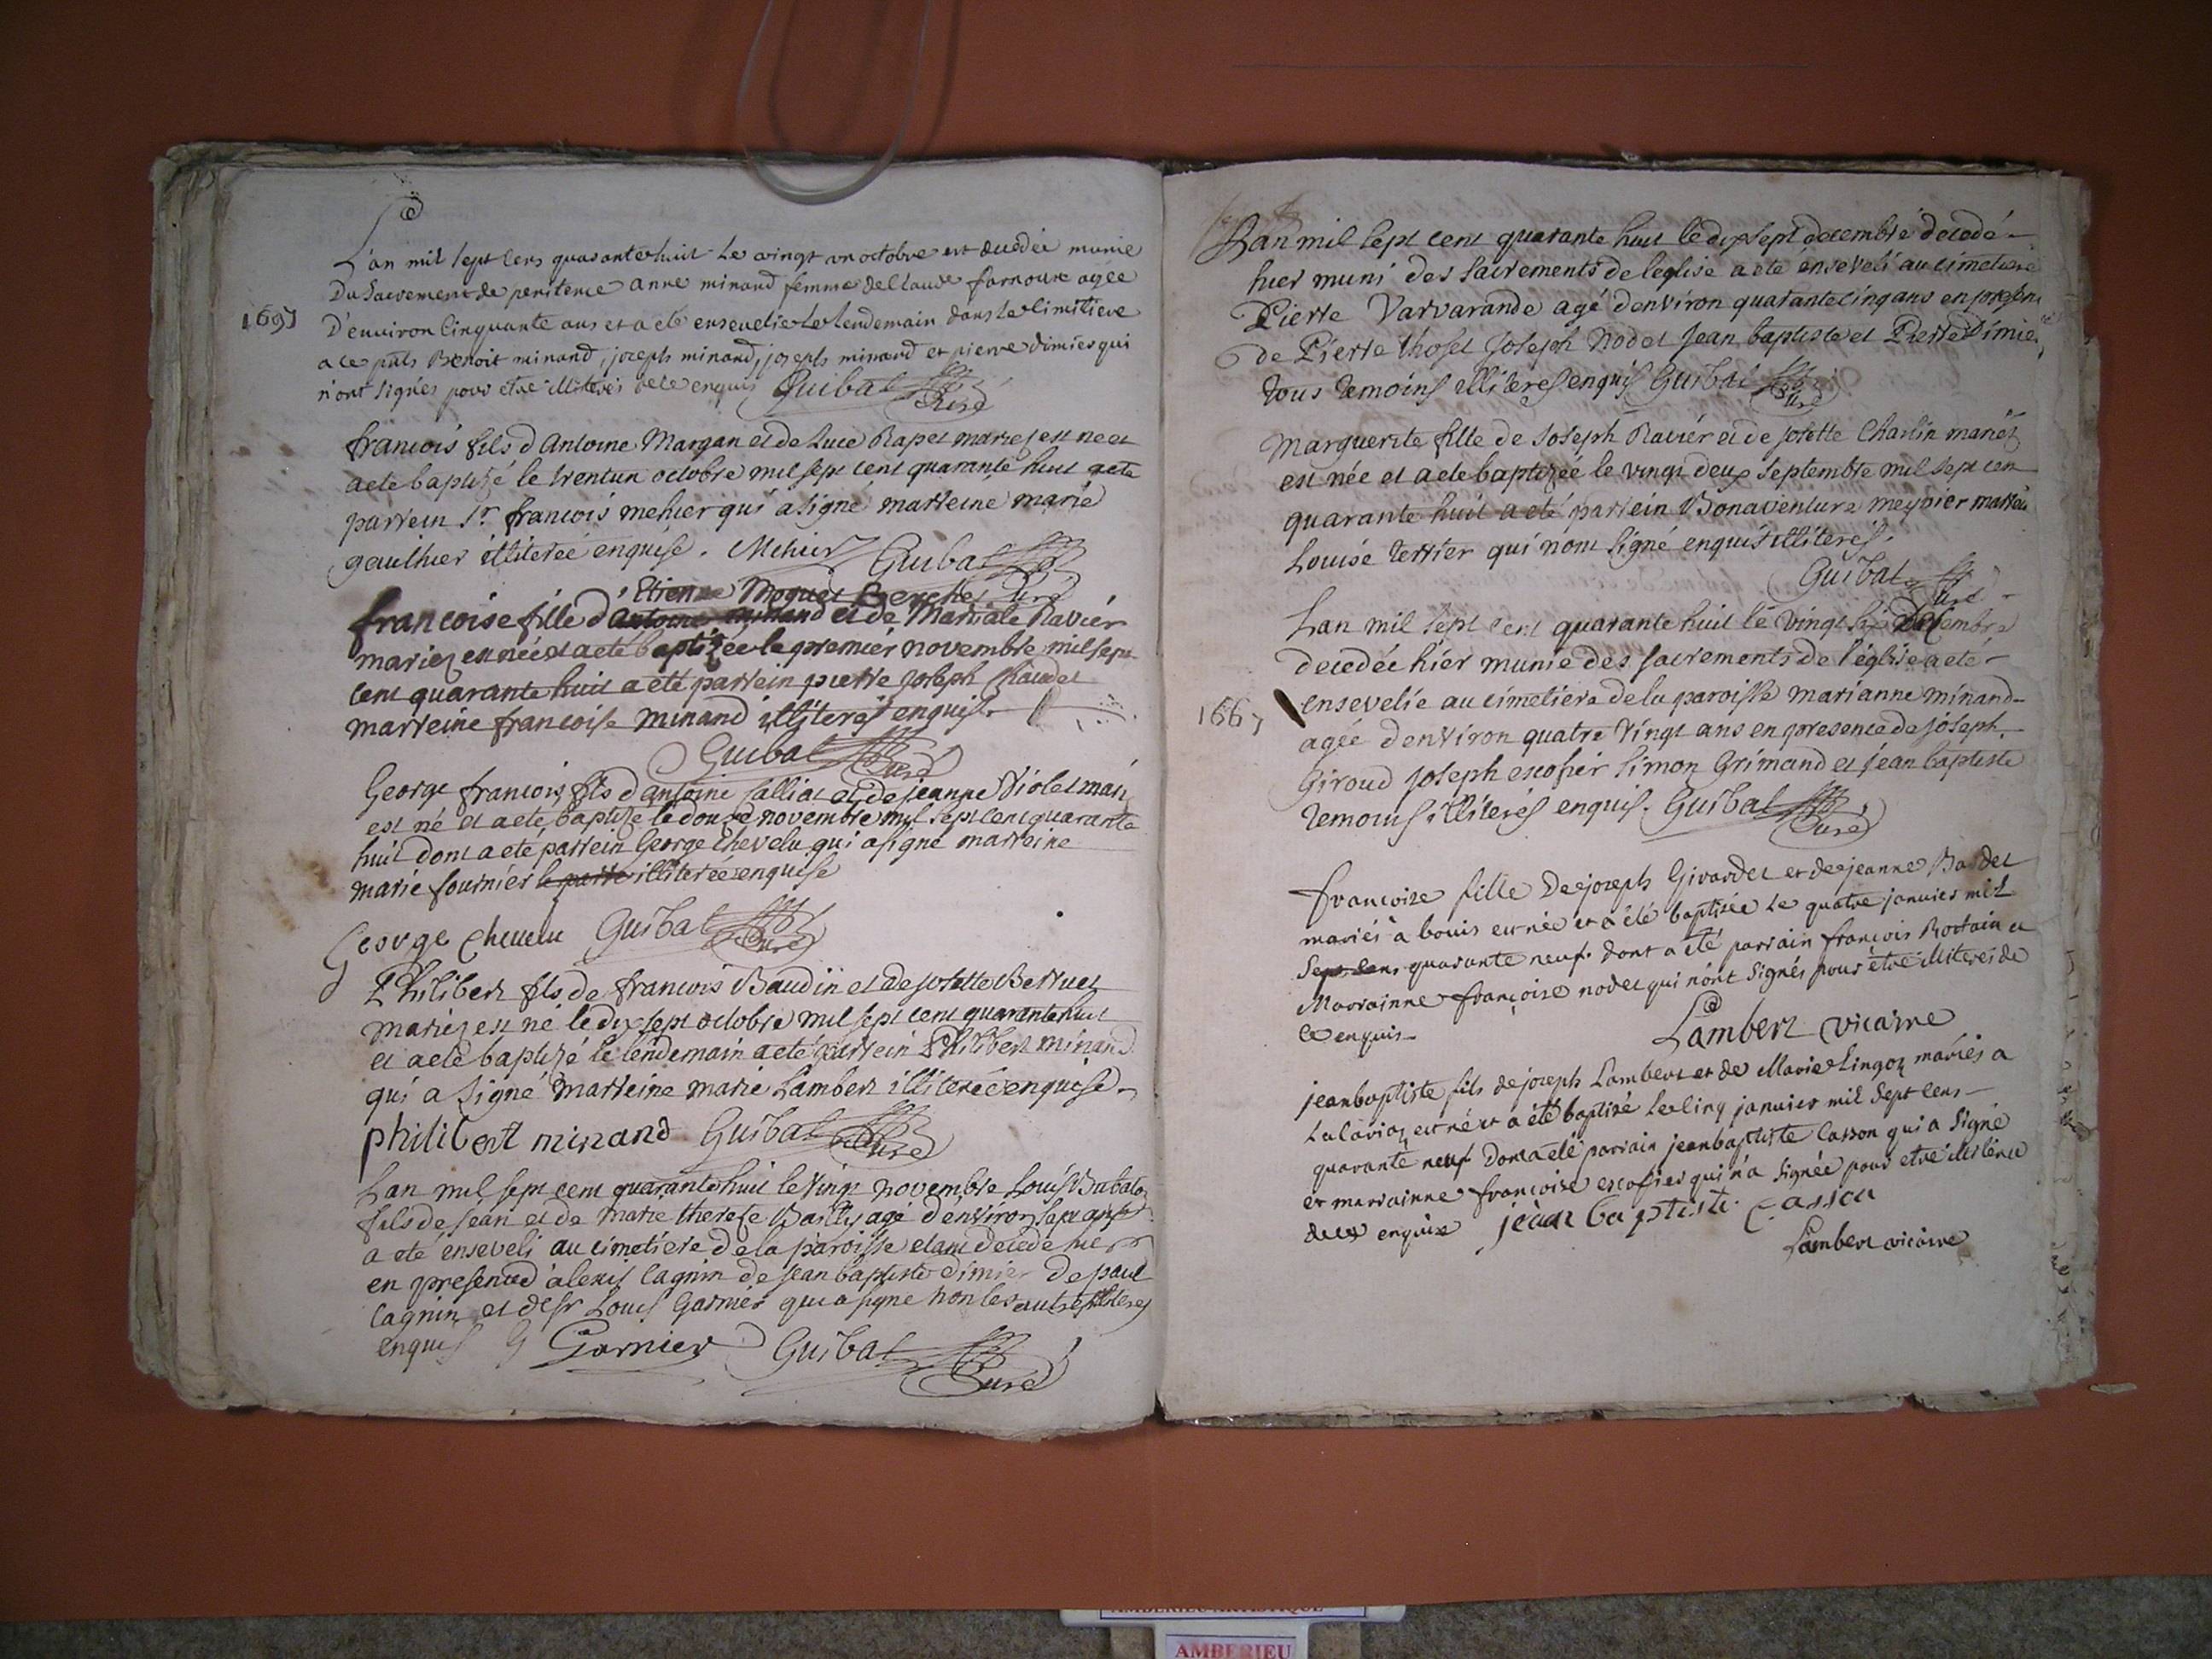 L'an mil sept cens quarante huit le vingt un octobre est decedée munie
Du Sacrement de penitence anne minand femme de Claude farnoux agée
1697
D'environ Cinquante ans et a eté ensevelie le lendemain dans le Cimitiere
a ce pnts Benoit minand, joseph minand, joseph minand et pierre dimier qui
n'ont signés pour etre illiterés de ce enquis Guibal Curé
francois fils d'Antoine Margan et de Luce Rapet mariez est né et
a eté baptizé le trentun octobre mil sept cent quarante huit a eté
parrein Sr. francois mehier qui a signé marreine marie
gauthier illiterée enquise. Mehier Guibal Curé
Etienne Moquet Berchet
francoise fille d'Antoine minand et de Martiale Ravier
mariez est née et a eté baptizée le premier novembre mil sept
cent quarante huit a eté parrein pierre Joseph Chaudet
marreine francoise minand illiterés enquis.
Guibal Curé
George francois fils d'antoine Salliat et de jeanne Violet mariez
est né et a eté baptize le douze novembre mil sept cent quarante
huit dont a eté parrein George Chevelu qui a signé marreine
marie fournier le parre illiterée enquise
George Chevelu Guibal Curé
Philibert fils de francois Baudin et de Josette Berruet
mariez est né le dix sept octobre mil sept cent quarante huit
et a eté baptizé le lendemain a eté parrein Philibert minand
qui a signé marreine marie Lambert illiterée enquise
philibert minand Guibal Curé
Lan mil sept cent quarante huit le vingt novembre Louis Babaloz
fils de Jean et de marie therese Bailly agé d'environ sept ans
a eté enseveli au cimetiere de la paroisse etant decedé hier
en presence d'alexis Cagnin de Jean baptiste dimier de paul
Cagnin et de sr Louis Garnier qui a signé non les autres illiterés
enquis G Garnier Guibal Curé
Lan mil sept cent quarante huit le dix sept decembre decedé
hier muni des sacrements de l'eglise a eté enseveli au cimetiere
Pierre Varvarande agé d'environ quarante cinq ans en presence
de Pierre thoset Joseph Nodet Jean baptiste et Pierre Dimier
tous temoins illiterés enquis Guibal Curé
Marguerite fille de Joseph Ravier et de josette Charlin mariez
est née et a eté baptizeé le vingt deux septembre mil sept cen
quarante huit a eté parrein Bonaventure meynier marreine
Louise terrier qui n'ont signé enquis illiterés.
Guibal Curé
Lan mil sept cent quarante huit le vingt six Decembre
decedée hier munie des sacrements de l'église a eté
ensevelie au cimetiere de la paroisse marianne minand
1667
agée d'environ quatre vingt ans en presence de joseph
Giroud Joseph escofier Simon Grimand et jean baptiste
temoins illiterés enquis. Guibal Curé
francoise fille De joseph Girardet et de jeanne Bardet
mariés a bouis est née et a été baptisée Le quatre janvier mil
sept cens quarante neuf. dont a été parrain francois Rostain et
Marrainne françoise nodet qui n'ont signés pour être illiterés de
ce enquis
Lambert vicaire
jean baptiste fils de joseph Lambert et de Marie Lingoz mariés a
La laviaz est né et a été baptisé Le Cinq janvier mil sept cens
quarante neuf dont a eté parrain jean baptiste Casson qui a signé
et marrainne françoise escofier qui n'a signée pour etre illiterée
de ce enquise jean baptiste Casson
Lambert vicaire
AMBERIEU ARTISTIQUE
AMBERIEU